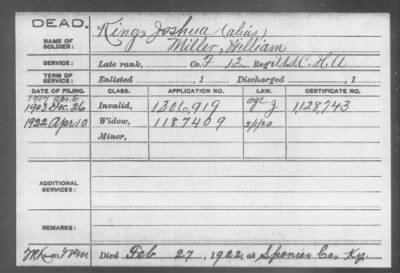 DEAD.
King, Joshua (alias)
NAME OF SOLDIER: Miller, William
SERVICE: Late rank, Co. F 12 Reg't U.S.C.H.A
TERM OF SERVICE: Enlisted , 1 Discharged , 1
DATE OF FILING. CLASS. APPLICATION NO. LAW. CERTIFICATE NO.
1907 Apr. 6
1903 Dec. 26 Invalid, 1306,919 J 1,128,743
1922 Apr 10 Widow, 1187409
Minor,
ADDITIONAL SERVICES:
REMARKS:
Died Feb 27, 1922, at Spencer Co. Ky.